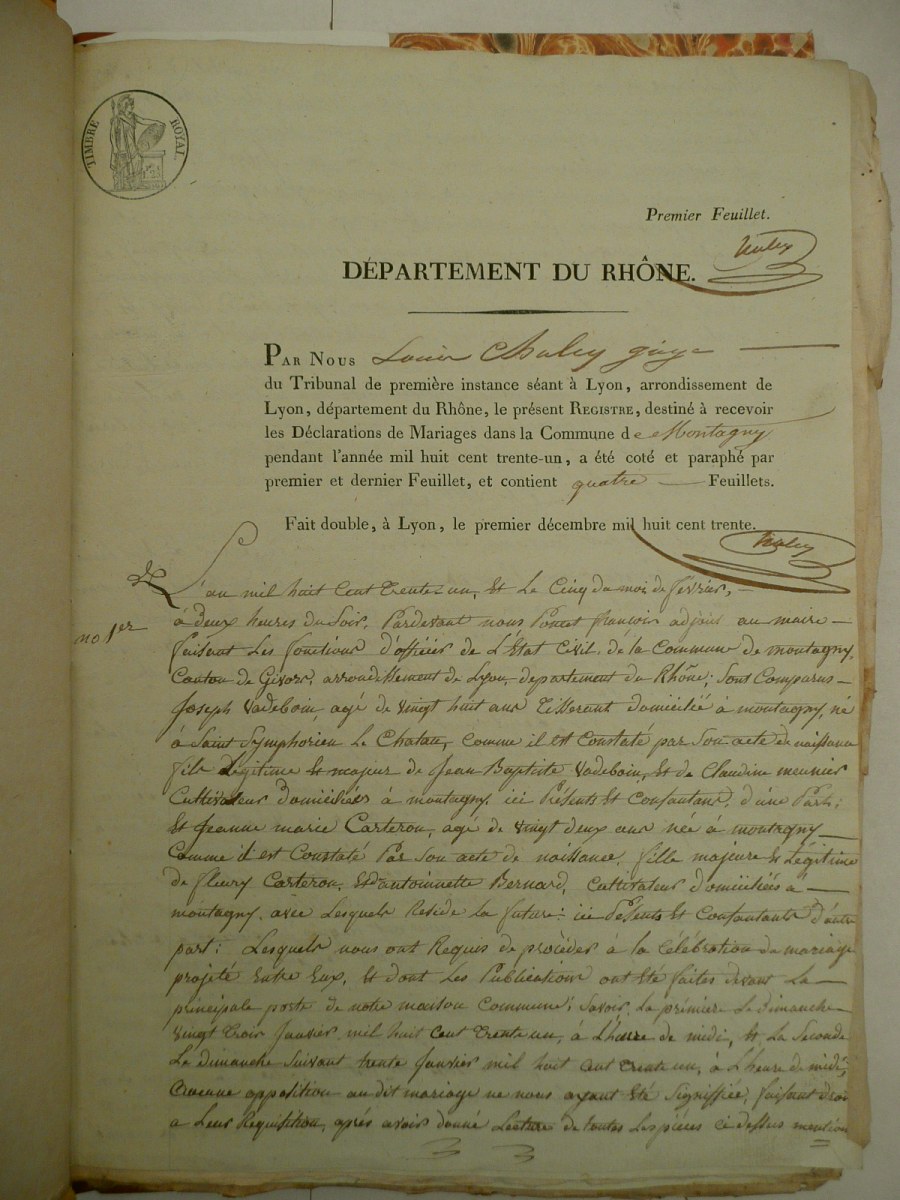 TIMBRE ROYAL.
Premier Feuillet.
Chaley
DÉPARTEMENT DU RHÔNE.
PAR NOUS Louis Chaley juge
du Tribunal de première instance séant à Lyon, arrondissement de
Lyon, département du Rhône, le présent REGISTRE, destiné à recevoir
les Déclarations de Mariages dans la Commune de Montagny
pendant l'année mil huit cent trente-un, a été coté et paraphé par
premier et dernier Feuillet, et contient quatre Feuillets.
Fait double, à Lyon, le premier décembre mil huit cent trente.
Chaley
no 1er
L'an mil huit Cent trente un, et le Cinq du moi de février,
à deux heures du Soir, Pardevant nous Poncet françois adjoint au maire
faisant Les fonctions d'officier de L'Etat Civil, de la Commune de montagny,
Canton de Givors, arrondissement de Lyon, département du Rhône; Sont Comparus
Joseph Vadeboin, agé de vingt huit ans Tisserant domicilié à montagny, né
à Saint Symphorien Le Chatau, comme il est Constaté par Son acte de naissance
fils Légitime et majeur de Jean Baptiste Vadeboin, et de Claudine meunier
Cultivateur domiciliés à montagny, ici Présents et Consentant, d'une Part;
Et Jeanne marie Carteron, agé de vingt deux ans née à montagny
Comme il est Constaté Par Son acte de naissance, fille majeure et Légitime
de fleury Carteron, et d'antoinnette Bernard, Cultivateur domiciliés à
montagny, avec Lesquels Réside La future: ici Présents et Consantants d'autre
part; Lesquels nous ont Requis de procéder à la Célébration du mariage
projeté entre Eux, et dont Les Publications ont été faites devant La
principale porte de notre maison Commune; Savoir, La première Le dimanche
vingt trois Janvier mil huit Cent trente un, à L'heure de midi, et La Seconde
Le dimanche Suivant trente Janvier mil huit Cent trente un, à L'heure de midi,
Aucune opposition au dit mariage ne nous ayant été Signiffiée, faisant droit
a Leur Requisition, après avoir donné Lecture de toutes Les pièces ci dessus mention